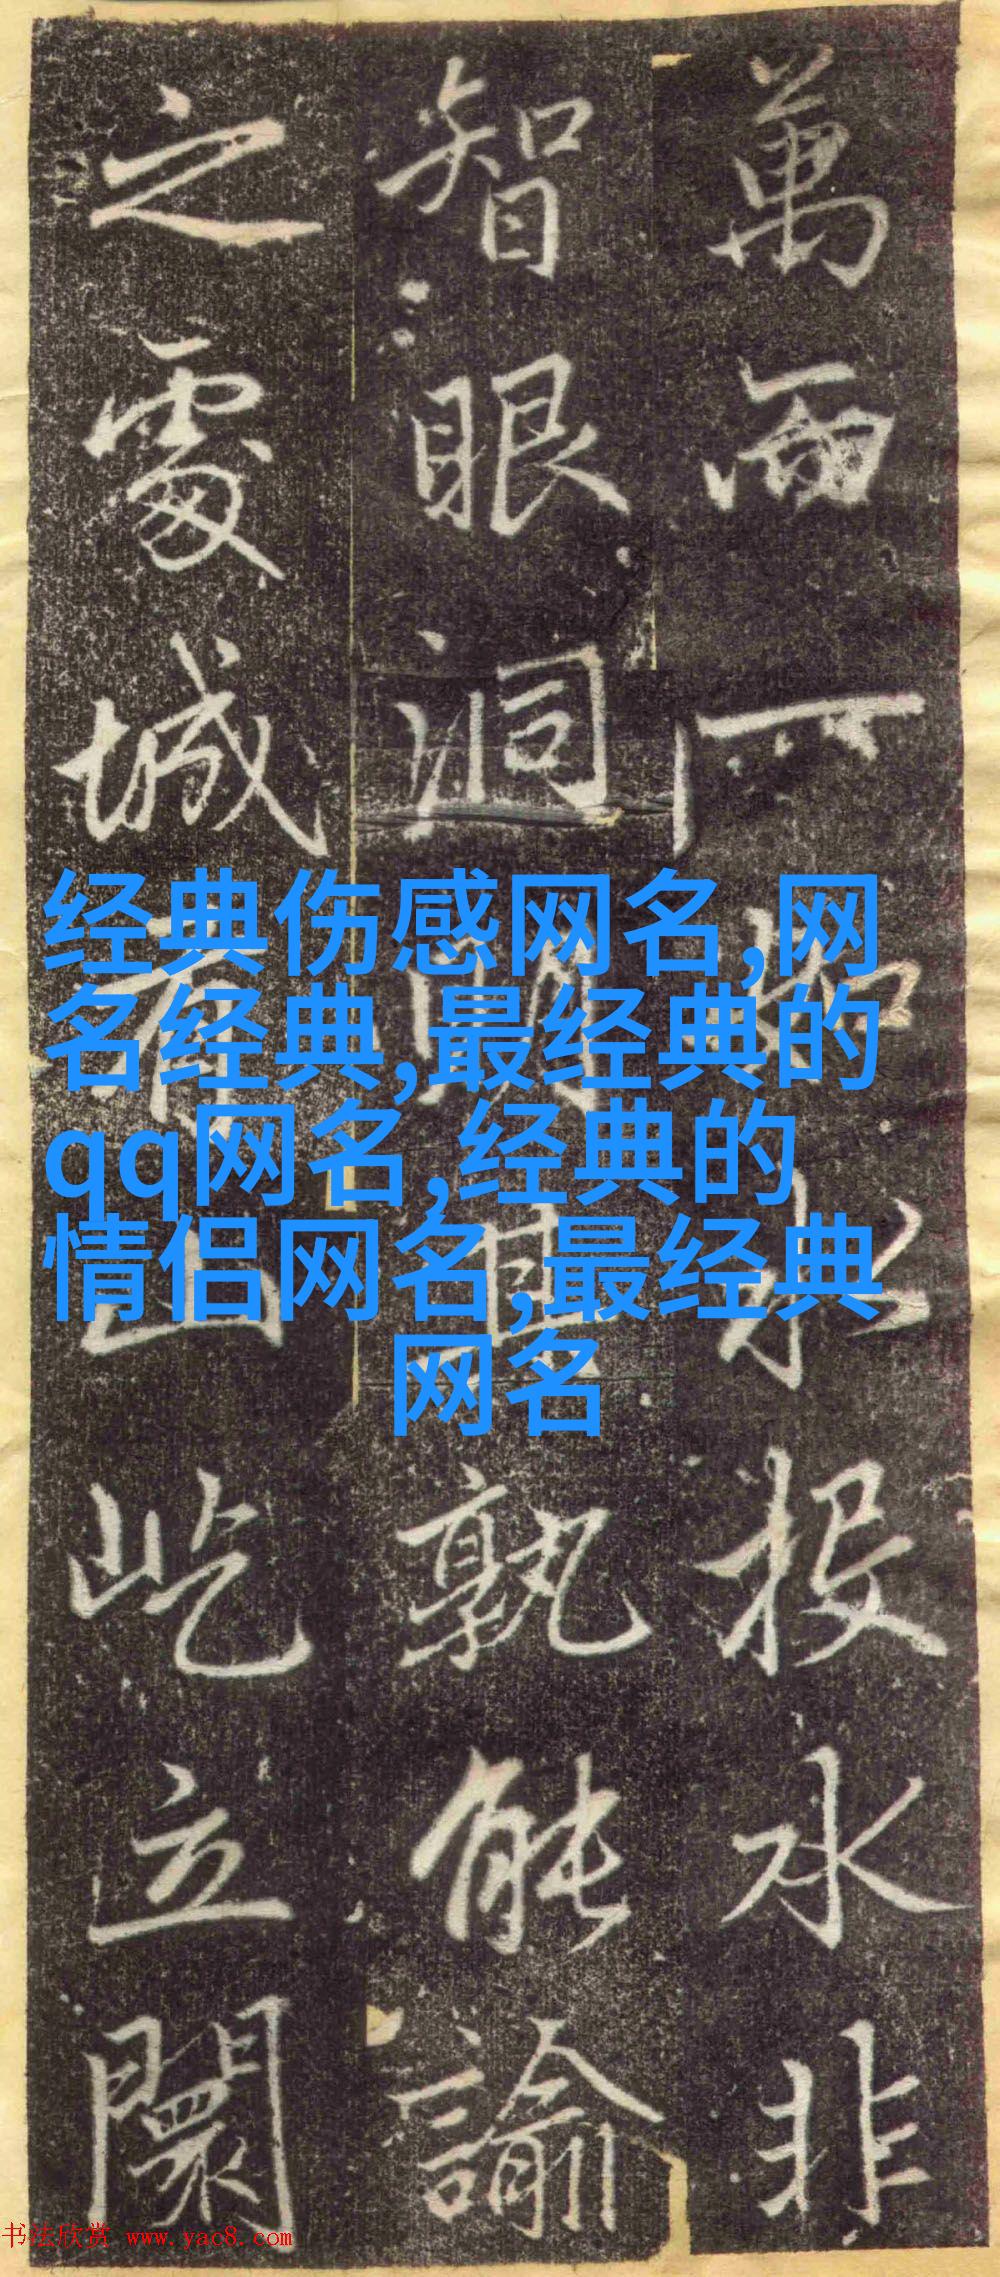 萬 如水投水非
智眼洞開 孰能諭
之處城 山屹立闤
经典伤感网名,网
名经典,最经典的
qq网名,经典的
情侣网名,最经典
网名
书法欣赏 www.yac8.com